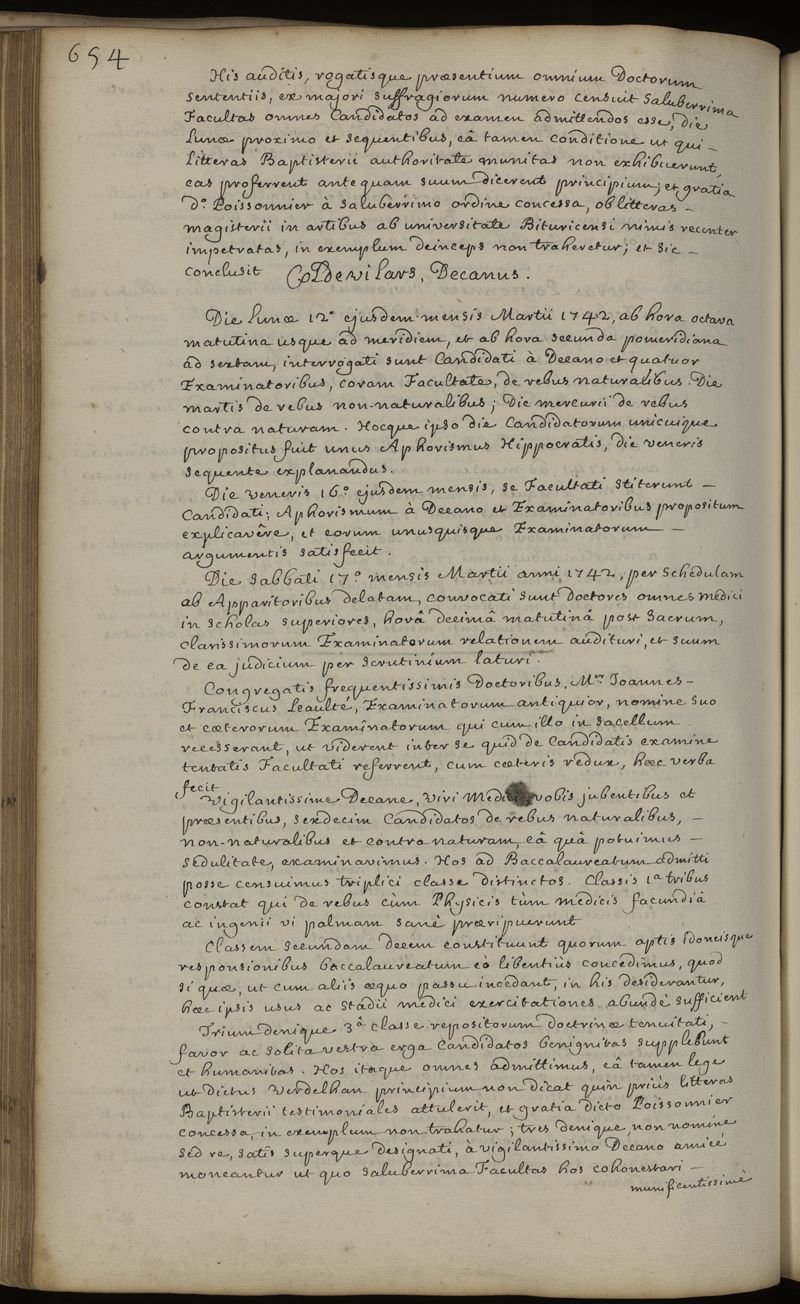 654
His auditis, rogatisque præsentium omnium Doctorum
sententiis, ex majori suffragiorum numero censuit Saluberrima
Facultas omnes Candidatos ad examen admittendos esse, die
Lunæ proximo et sequentibus, eâ tamen conditione ut qui –
Litteras Baptisterii authoritate munitas non exhibuerunt,
eas proferrent antequam suum dicerent principium; et gratia
d.º Poissonnier à Saluberrimo ordine concessa, ob litteras –
magisterii in artibus ab universitate Bituricensi nimis recenter
impetratas, in exemplum deinceps non traheretur; et sic –
conclusit Col De vilars, Decanus.
Die Lunæ 12.ª ejusdem mensis Martii 1742, ab hora octava
matutina usque ad meridiem, et ab hora secunda pomeridiana
ad sextam, interrogati sunt Candidati à Decano et quatuor
Examinatoribus, coram Facultate, de rebus naturalibus. Die
martis de rebus non-naturalibus; Die mercurii de rebus
contra naturam. Hocque ipso die Candidatorum unicuique
propositus fuit unus Aphorismus Hippocratis, die veneris
sequente explanandus.
Die veneris 16.º ejusdem mensis, se Facultati stiterunt –
Candidati; Aphorismum à Decano et Examinatoribus propositum
explicavêre, et eorum unusquisque Examinatorum –
argumentis satisfecit.
Die Sabbati 17.º mensis Martii anni 1742, per Schedulam
ab Apparitoribus delatam, convocati sunt Doctores omnes medici
in scholas superiores, horâ decimâ matutinâ post Sacrum,
clarissimorum Examinatorum relationem audituri, et suum
de ea judicium per Scrutinium laturi.
Congregatis frequentissimis Doctoribus, M.er Joannes –
Franciscus Leaulté, Examinatorum antiquior, nomine suo
et cæterorum Examinatorum qui cum illo in sacellum
recesserant, ut viderent inter se quid de Candidatis examine
tentatis Facultati referrent, cum cæteris redux, hæc verba
fecit
Vigilantissime Decane, viri Medici vobis jubentibus et
præsentibus, sexdecim Candidatos de rebus naturalibus, –
non-naturalibus et contra naturam, eâ quâ potuimus –
sedulitate, examinavimus. Hos ad Baccalaureatum admitti
posse censuimus triplici classe distinctos. Classis 1.ª tribus
constat qui de rebus cùm Physicis tùm medicis facundiâ
ac ingenii vi palmam sanè præripuerunt
Classem secundam decem constituunt quorum aptis idoneisque
responsionibus baccalaureatum eò libentiùs concedimus, quod
si quæ, ut cum aliis æquo passu incedant, in his desiderantur,
hæc ipsis usus ac stadii medici exercitationes abundè sufficient
Trium denique 3.â classe repositorum doctrinæ tenuitati, –
favor ac solita vestra erga Candidatos benignitas supplebunt
et humanitas. Hos itaque omnes admittimus, eâ tamen lege
ut dictus Verdelhan principium non dicat quin priùs litteras
Baptisterii testimoniales attulerit, et gratia dicto Poissonnier
concessa, in exemplum non trahatur; tres denique non nomine
sed re, satis superque designati, à vigilantissimo Decano amicè
moneantur ut quo Saluberrima Facultas hos cohonestari –
munificentissimè